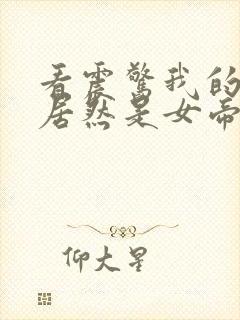 看震驚我的
居然是女帝
仰大星